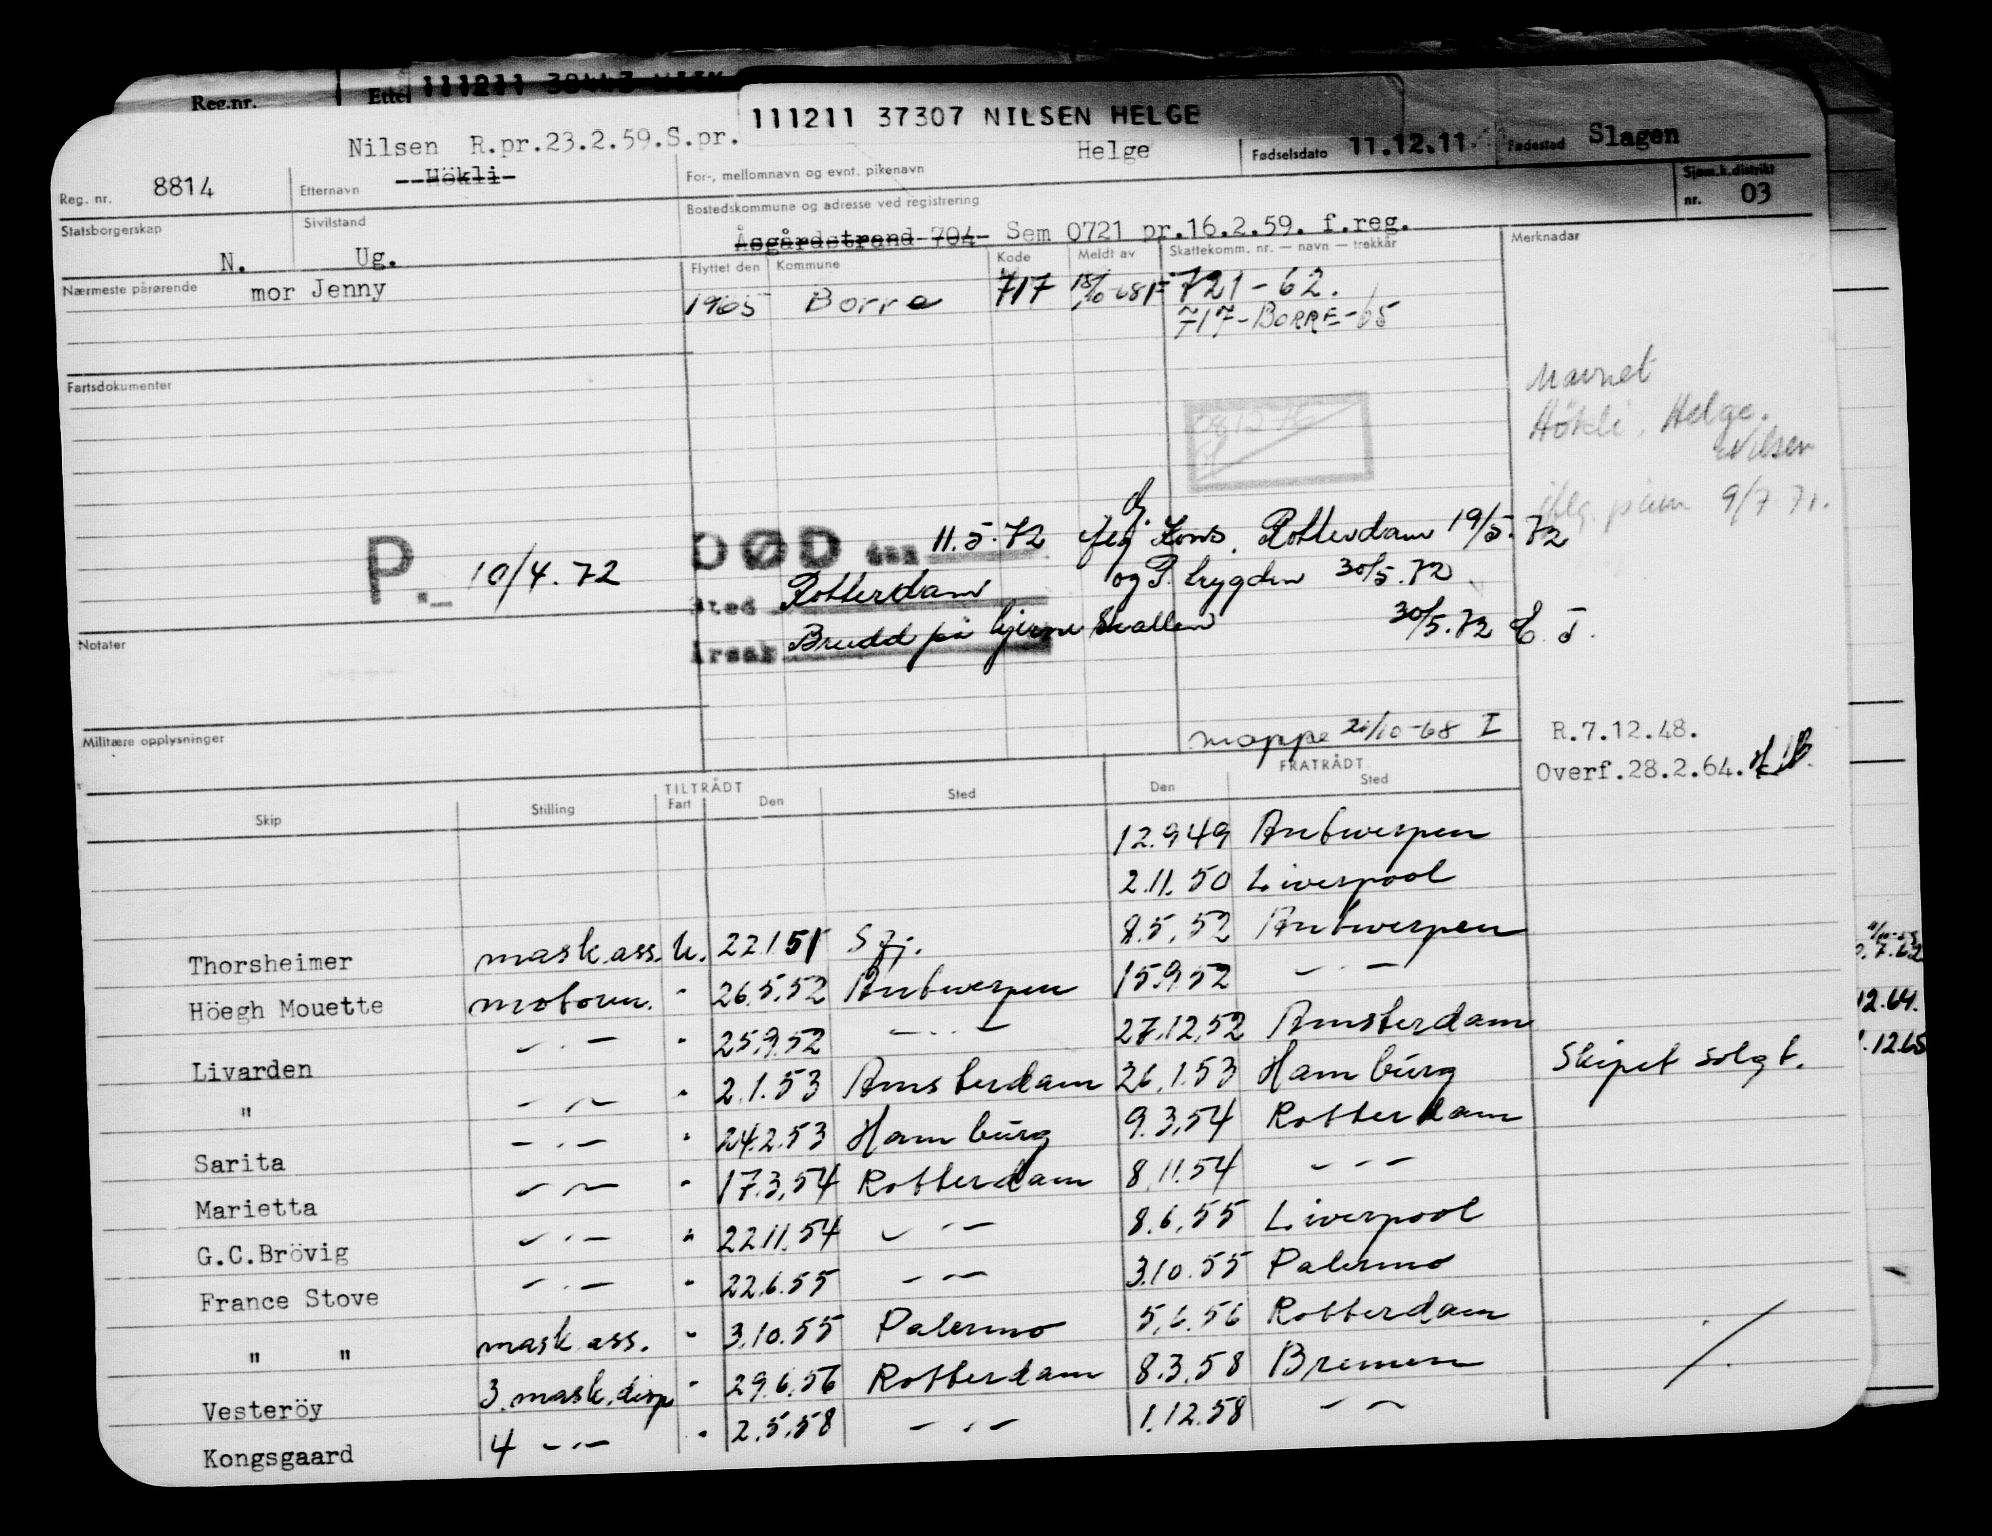 Reg.nr.
111211 37307 NILSEN HELGE
Nilsen R.pr.23.2.59.S.pr.
Helge
Fødselsdato 11.12.11. Fødested Slagen
Reg. nr. 8814 Etternavn Hökli For-, mellomnavn og evnt. pikenavn
Sjøm.k.distrikt nr. 03
Statsborgerskap N. Sivilstand Ug. Bostedskommune og adresse ved registrering
Åsgårdstrand 704 Sem 0721 pr.16.2.59. f.reg.
Nærmeste pårørende mor Jenny
Flyttet den Kommune Kode Meldt av Skattekomm. nr. — navn — trekkår Merknadar
1965 Borre 717 18/10-68 F 721-62.
717-BORRE-65
Fartsdokumenter
Navnet
Hökli, Helge.
Nilsen
9/7 71.
P. 10/4.72
DØD den 11.5.72 Kons. Rotterdam 19/5.72
Sted Rotterdam og P. trygden 30/5.72
Årsak Brudd på hjerne skallen 30/5.72 E. J.
Notater
Militære opplysninger
moppe 21/10-68 I
R.7.12.48.
Overf.28.2.64.
TILTRÅDT FRATRÅDT
Skip Stilling Fart Den Sted Den Sted
12.9 49 Antwerpen
2.11.50 Liverpool
Thorsheimer mask.ass. U. 22.1 51 Sfj. 8.5.52 Antwerpen
Höegh Mouette motorm. " 26.5.52 Antwerpen 15.9 52 — " —
Livarden — " — " 25.9.52 — " — 27.12.52 Amsterdam
" — " — " 2.1.53 Amsterdam 26.1.53 Hamburg Skipet solgt.
Sarita — " — " 24.2.53 Hamburg 9.3.54 Rotterdam
Marietta — " — " 17.3.54 Rotterdam 8.11.54 — " —
G.C.Brövig — " — " 22.11.54 — " — 8.6.55 Liverpool
France Stove — " — " 22.6.55 — " — 3.10.55 Palermo
" " mask ass. " 3.10.55 Palermo 5.6.56 Rotterdam
Vesteröy 3. mask.disp " 29.6.56 Rotterdam 8.3.58 Bremen
Kongsgaard 4 — " — " 2.5.58 — " — 1.12.58 — " —